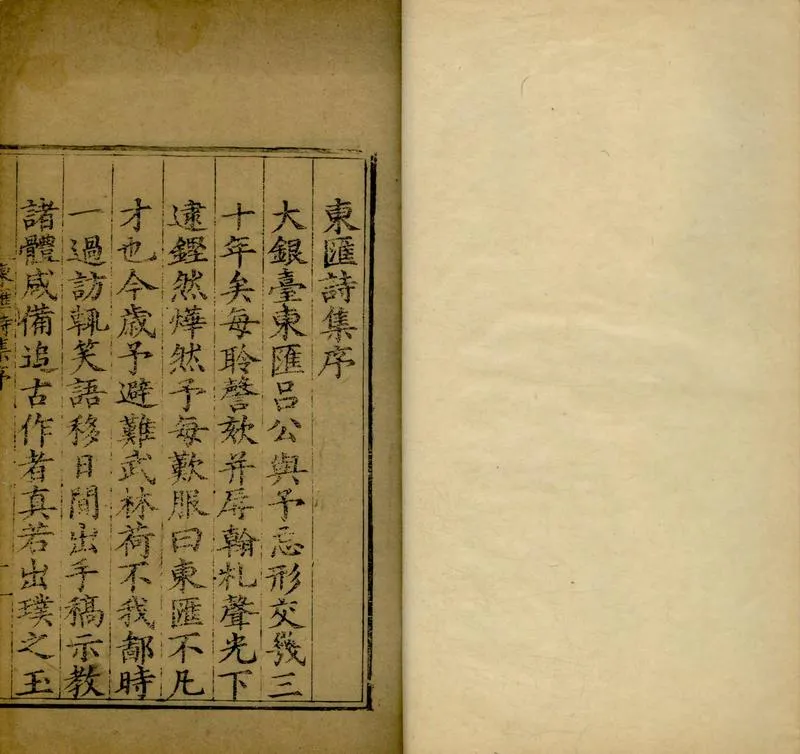 東匯詩集序
大銀臺東匯吕公與予忘形交幾三
十年矣每聆謦欬并辱翰札聲光下
逮鏗然燁然予每歎服曰東匯不凡
才也今歲予避難武林荷不我鄙時
一過訪輒笑語移日間出手稿示教
諸體咸備追古作者真若出璞之玉
東匯詩集序